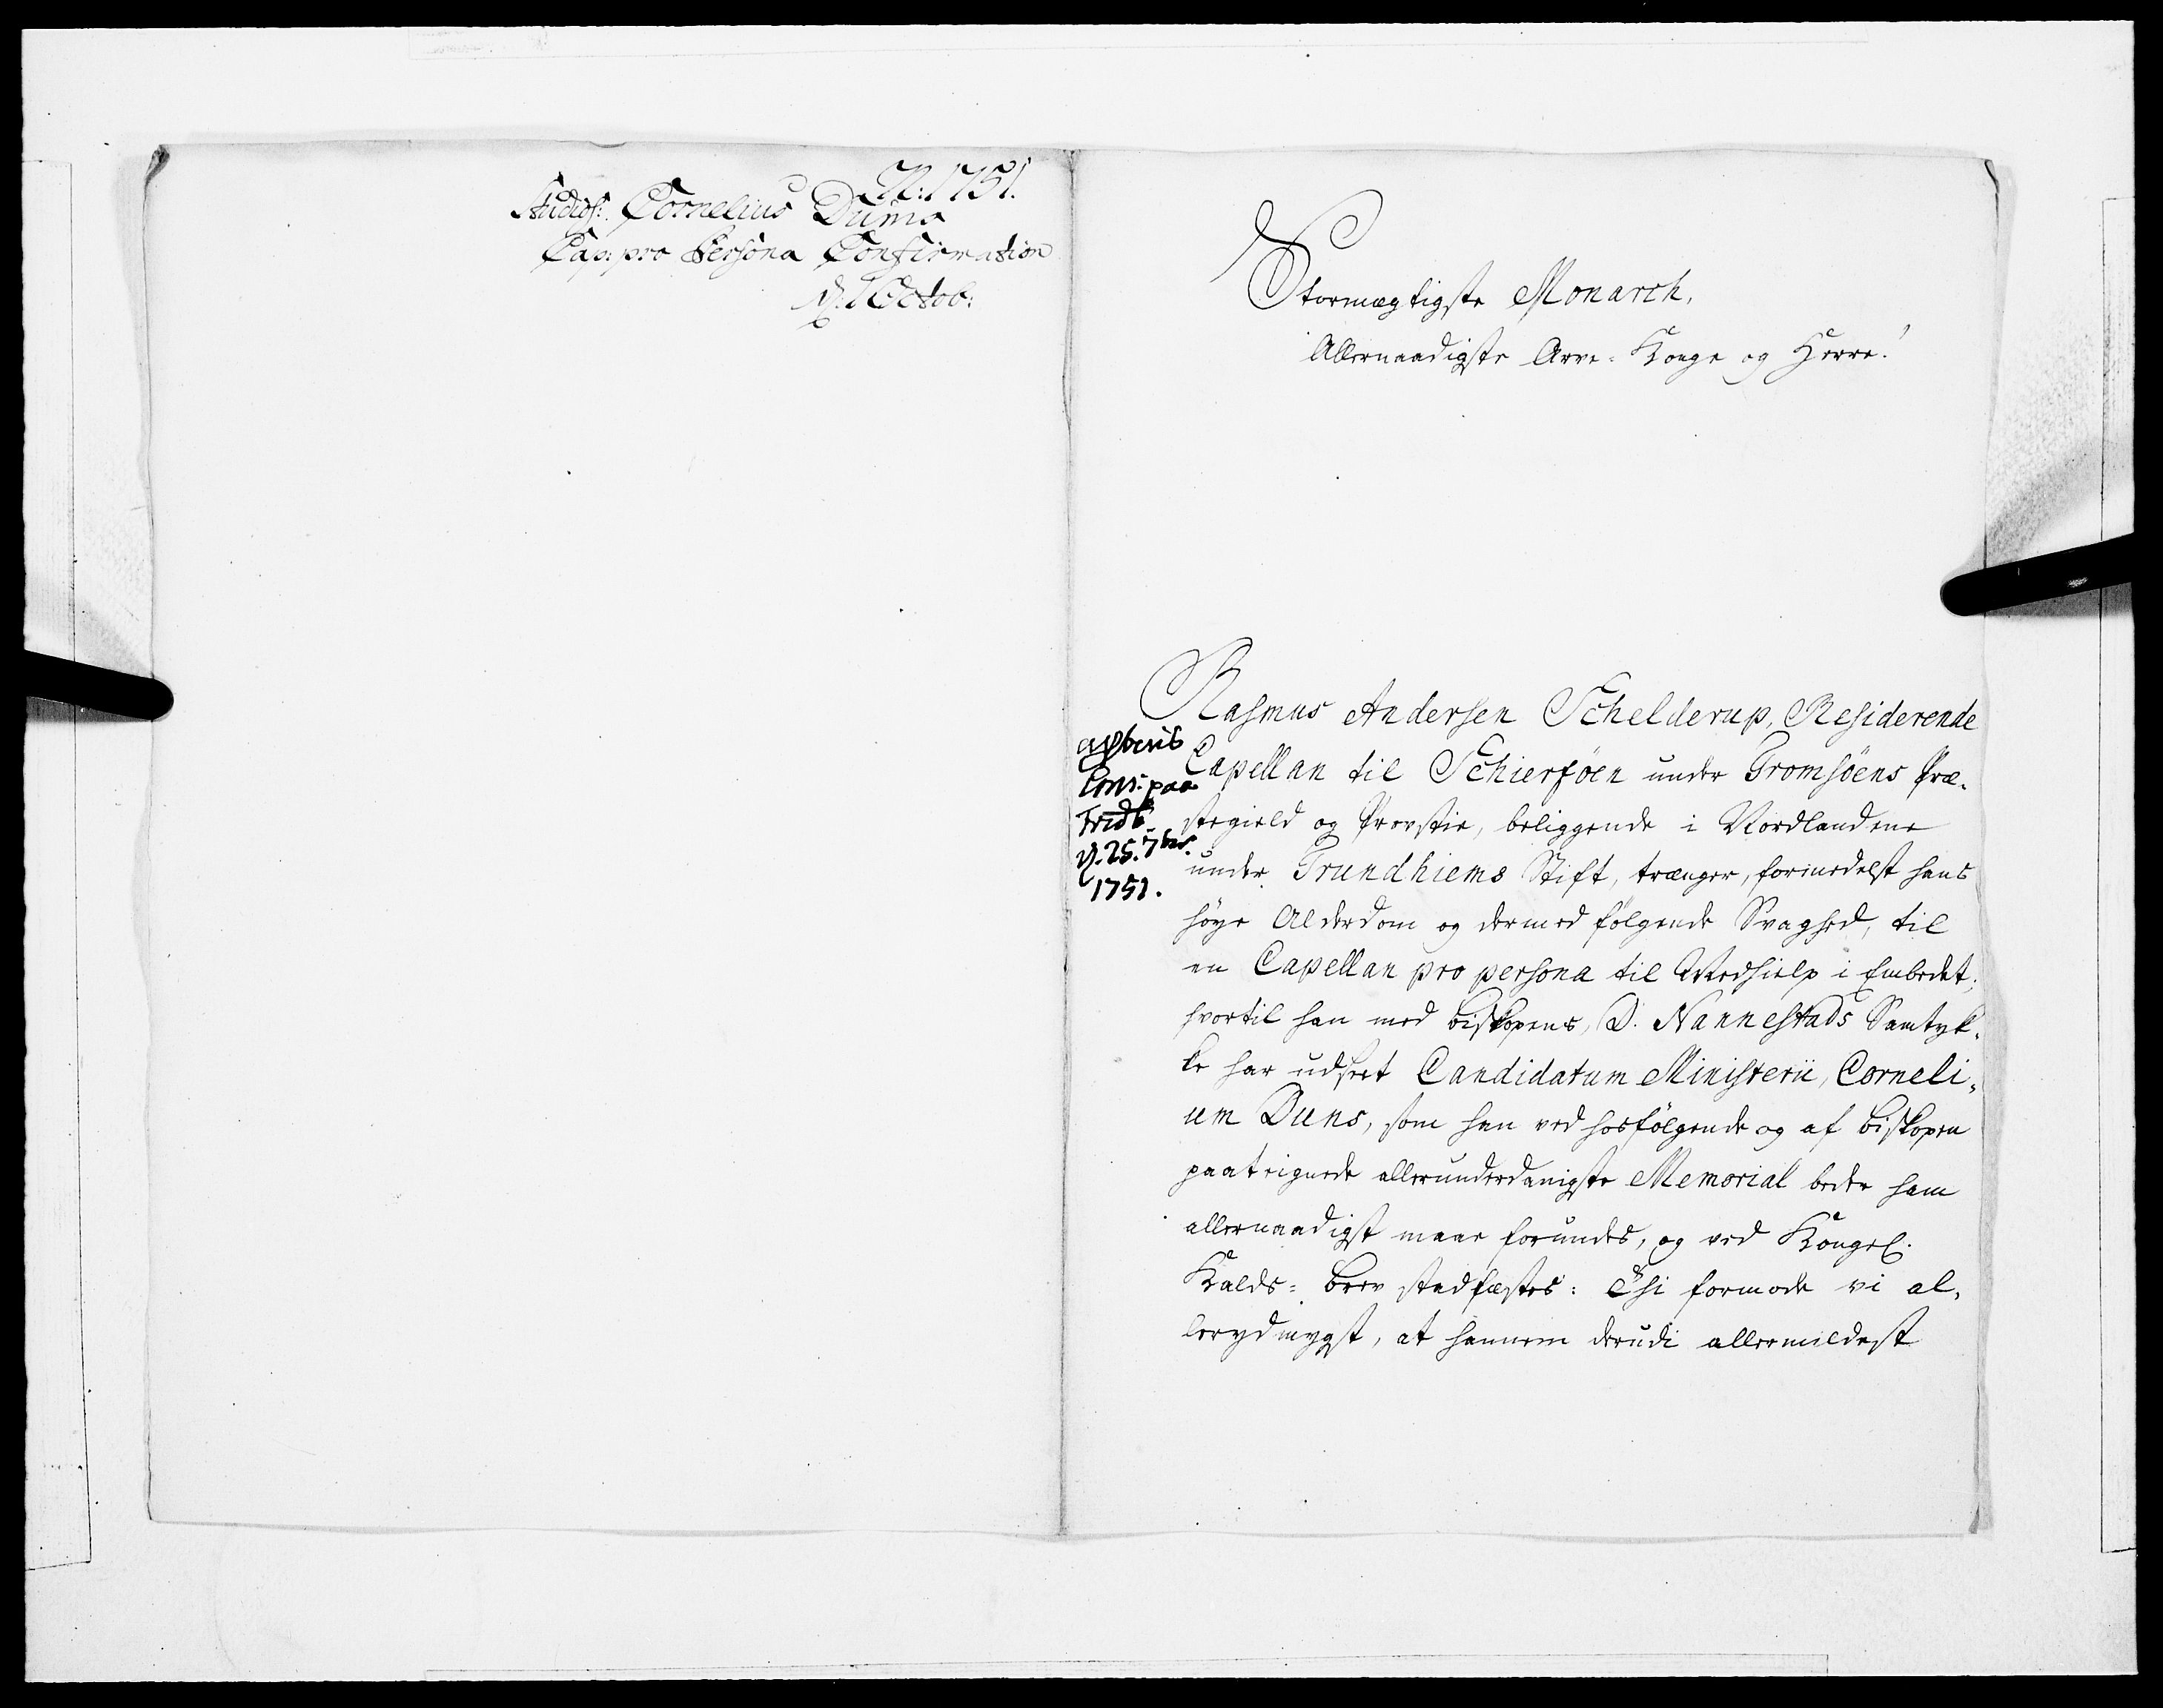 N: 1751.
Studios: Cornelius Dums
Cap: pro Persona Confirmation
d: 1 Octob:
Stormægtigste Monarch,
Allernaadigste Arve-Konge og Herre!
Rasmus Andersen Schelderup, Residerende
Capellan til Schierföen under Tromsöens Præ-
stegield og Provstie, beliggende i Nordlandene
under Trundhiems Stift, trænger, formedelst hans
høye Alderdom og dermed følgende Svaghed, til
en Capellan pro persona til Medhielp i Embedet;
hvortil han med biskopens, D. Nannestads Samtyk-
ke har udseet Candidatum Ministerii, Corneli-
um Duns, som han ved hosfølgende og af biskopen
paategnede allerunderdanigste Memorial beder ham
allernaadigst maae forundes, og ved Kongel.
Kalds-brev stadfæstes: Thi formode vi al-
lerydmygst, at hannem derudi allermildest
Cons: paa
Fridb.
d. 25. 7br.
1751.